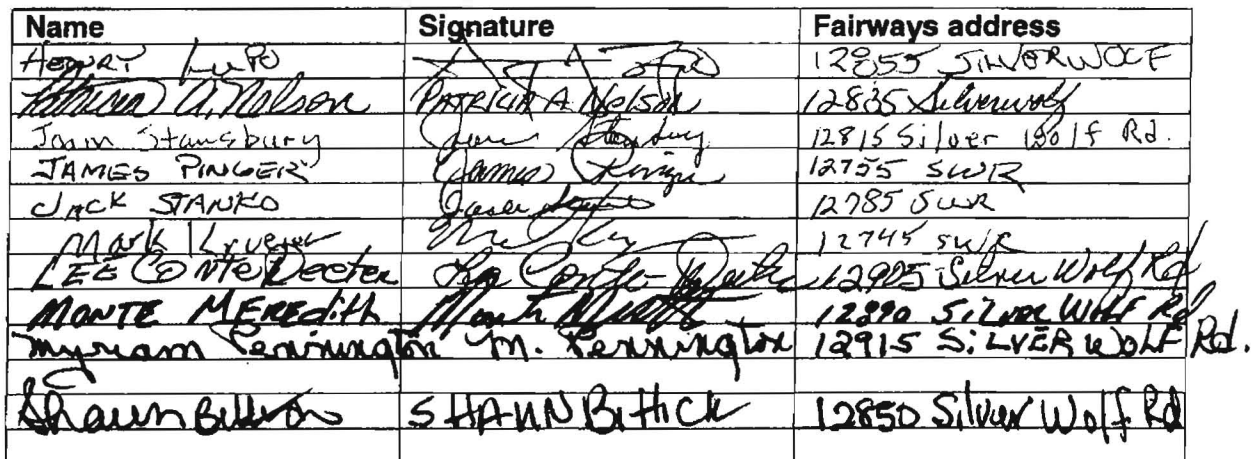 Name Signature Fairways address
HENRY LUPO 12855 SILVERWOLF
Patricia A. Nelson PATRICIA A. NELSON 12835 Silverwolf
Joann Stansbury 12815 Silver Wolf Rd.
JAMES PINGER James Pinger 12755 SWR
JACK STANKO 12785 SWR
Mark Krueger 12745 SWR
LEE CONTE Deeter Lee Conte-Deeter 12905 Silver Wolf Rd
MONTE MEREDith 12890 SiLVER WOLF Rd
Myriam Pennington M. Pennington 12915 SiLVER WOLF Rd.
Shaun SHAUN BittICK 12850 Silver Wolf Rd